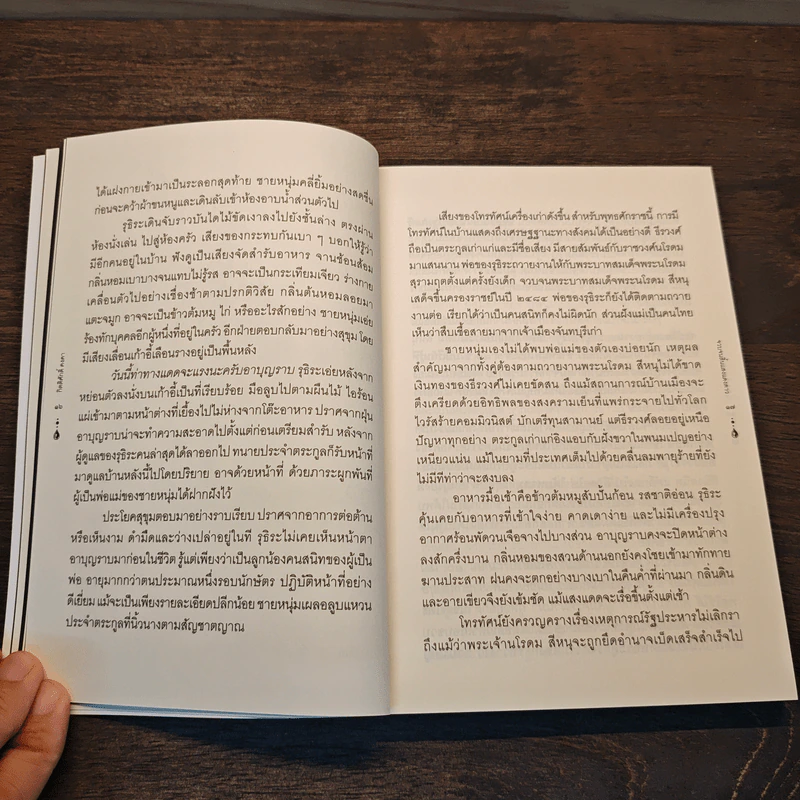 ได้แฝงกายเข้ามาเป็นระลอกสุดท้าย ชายหนุ่มคลี่ยิ้มอย่างสดชื่น
ก่อนจะคว้าผ้าขนหนูและเดินลับเข้าห้องอาบน้ำส่วนตัวไป
รุธิระเดินจับราวบันไดไม้ขัดเงาลงไปยังชั้นล่าง ตรงผ่าน
ห้องนั่งเล่น ไปสู่ห้องครัว เสียงของกระทบกันเบา ๆ บอกให้รู้ว่า
มีอีกคนอยู่ในบ้าน ฟังดูเป็นเสียงจัดสำรับอาหาร จานช้อนส้อม
กลิ่นหอมเบาบางจนแทบไม่รู้รส อาจจะเป็นกระเทียมเจียว ร่างกาย
เคลื่อนตัวไปอย่างเชื่องช้าตามปรกติวิสัย กลิ่นต้นหอมลอยมา
แตะจมูก อาจจะเป็นข้าวต้มหมู ไก่ หรืออะไรสักอย่าง ชายหนุ่มเอ่ย
ร้องทักบุคคลอีกผู้หนึ่งที่อยู่ในครัว อีกฝ่ายตอบกลับมาอย่างสุขุม โดย
มีเสียงเลื่อนเก้าอี้เลื่อนรางอยู่เป็นพื้นหลัง
วันนี้ท่าทางแดดจะแรงนะครับอาบุญราบ รุธิระเอ่ยหลังจาก
หย่อนตัวลงนั่งบนเก้าอี้เป็นที่เรียบร้อย มือลูบไปตามผืนไม้ ไอร้อน
แผ่เข้ามาตามหน้าต่างที่เยื้องไปไม่ห่างจากโต๊ะอาหาร ปราศจากฝุ่น
อาบุญราบน่าจะทำความสะอาดไปตั้งแต่ก่อนเตรียมสำรับ หลังจาก
ผู้ดูแลของรุธิระคนล่าสุดได้ลาออกไป ทนายประจำตระกูลก็รับหน้าที่
มาดูแลบ้านหลังนี้ไปโดยปริยาย อาจด้วยหน้าที่ ด้วยภาระผูกพันที่
ผู้เป็นพ่อแม่ของชายหนุ่มได้ฝากฝังไว้
ประโยคสุขุมตอบมาอย่างราบเรียบ ปราศจากอาการต่อต้าน
หรือเห็นงาม ดำมืดและว่างเปล่าอยู่ในที รุธิระไม่เคยเห็นหน้าตา
อาบุญราบมาก่อนในชีวิต รู้แต่เพียงว่าเป็นลูกน้องคนสนิทของผู้เป็น
พ่อ อายุมากกว่าตนประมาณหนึ่งรอบนักษัตร ปฏิบัติหน้าที่อย่าง
ดีเยี่ยม แม้จะเป็นเพียงรายละเอียดปลีกน้อย ชายหนุ่มเผลอลูบแหวน
ประจำตระกูลที่นิ้วนางตามสัญชาตญาณ
๑๖
เสียงของโทรทัศน์เครื่องเก่าดังขึ้น สำหรับพุทธศักราชนี้ การมี
โทรทัศน์ในบ้านแสดงถึงเศรษฐฐานะทางสังคมได้เป็นอย่างดี ธีรวงศ์
ถือเป็นตระกูลเก่าแก่และมีชื่อเสียง มีสายสัมพันธ์กับราชวงศ์นโรดม
มาแสนนาน พ่อของรุธิระถวายงานให้กับพระบาทสมเด็จพระนโรดม
สุรามฤตตั้งแต่ครั้งยังเด็ก จวบจนพระบาทสมเด็จพระนโรดม สีหนุ
เสด็จขึ้นครองราชย์ในปี ๒๔๘๔ พ่อของรุธิระก็ยังได้ติดตามถวาย
งานต่อ เรียกได้ว่าเป็นคนสนิทก็คงไม่ผิดนัก ส่วนฝั่งแม่เป็นคนไทย
เห็นว่าสืบเชื้อสายมาจากเจ้าเมืองจันทบุรีเก่า
ชายหนุ่มเองไม่ได้พบพ่อแม่ของตัวเองบ่อยนัก เหตุผล
สำคัญมาจากทั้งคู่ต้องตามถวายงานพระนโรดม สีหนุไม่ได้ขาด
เงินทองของธีรวงศ์ไม่เคยขัดสน ถึงแม้สถานการณ์บ้านเมืองจะ
ตึงเครียดด้วยอิทธิพลของสงครามเย็นที่แพร่กระจายไปทั่วโลก
ไวรัสร้ายคอมมิวนิสต์ บักเตรีทุนสามานย์ แต่ธีรวงศ์ลอยอยู่เหนือ
ปัญหาทุกอย่าง ตระกูลเก่าแก่อิงแอบกับฝั่งขวาในพนมเปญอย่าง
เหนียวแน่น แม้ในยามที่ประเทศเต็มไปด้วยคลื่นลมพายุร้ายที่ยัง
ไม่มีทีท่าว่าจะสงบลง
อาหารมื้อเช้าคือข้าวต้มหมูสับปั้นก้อน รสชาติอ่อน รุธิระ
คุ้นเคยกับอาหารที่เข้าใจง่าย คาดเดาง่าย และไม่มีเครื่องปรุง
อากาศร้อนพัดวนเจือจางไปบางส่วน อาบุญราบคงจะปิดหน้าต่าง
ลงสักครึ่งบาน กลิ่นหอมของสวนด้านนอกยังคงโชยเข้ามาทักทาย
ฆานประสาท ฝนคงจะตกอย่างบางเบาในคืนค่ำที่ผ่านมา กลิ่นดิน
และอายเขียวจึงยังเข้มชัด แม้แสงแดดจะเรื่อขึ้นตั้งแต่เช้า
โทรทัศน์ยังครวญครางเรื่องเหตุการณ์รัฐประหารไม่เลิกรา
ถึงแม้ว่าพระเจ้านโรดม สีหนุจะถูกยึดอำนาจเบ็ดเสร็จสำเร็จไป
๑๗